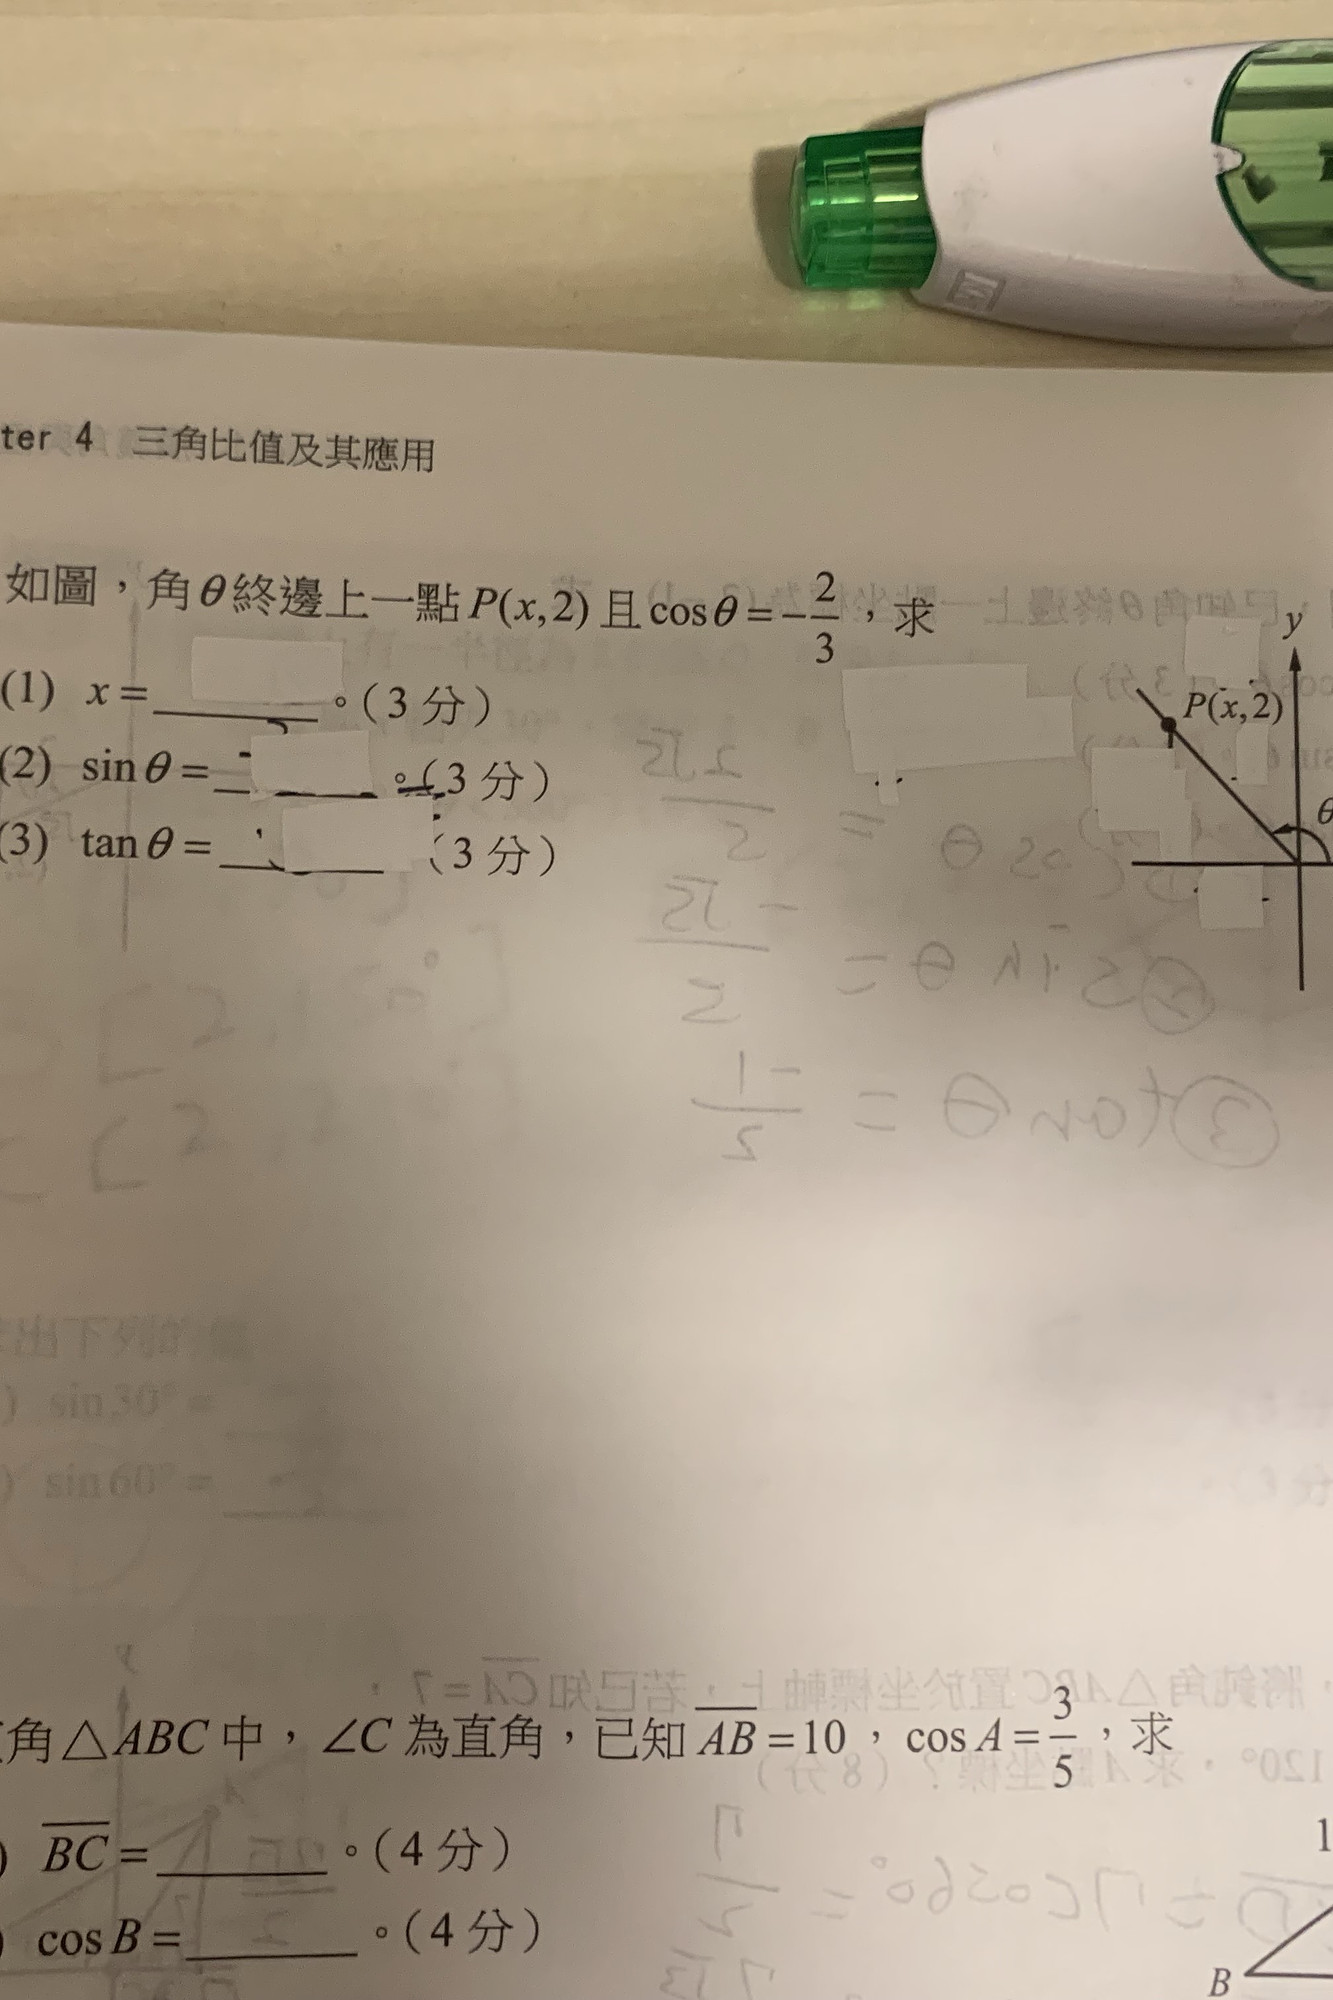 ter 4 三角比值及其應用
如圖，角θ終邊上一點P(x,2)且cosθ=-2/3，求
(1) x=______。(3分)
(2) sinθ=______。(3分)
(3) tanθ=______(3分)
y
P(x,2)
θ
角△ABC中，∠C為直角，已知AB=10，cosA=3/5，求
) BC=______。(4分)
) cosB=______。(4分)
1
B